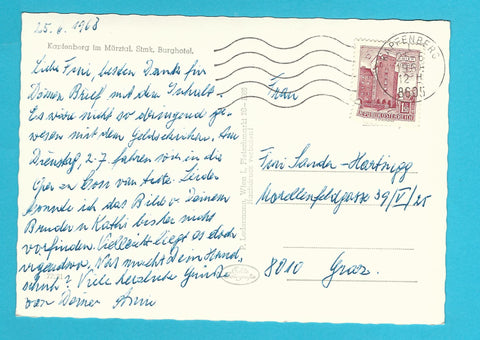 25. 6. 1968
Kapfenberg im Mürztal. Stmk. Burghotel.
Liebe Fini, besten Dank für
Deinen Brief mit dem Inhalt.
Es wäre nicht so dringend ge-
wesen mit dem Geldschicken. Am
Dienstag, 2.7. fahren wir in die
Oper
konnte ich das Bild v. Deinem
Bruder u. Kathi bisher nicht
vorfinden. Vielleicht liegt es doch
irgendwo. Was macht Dein
Viele herzliche Grüße
von Deiner Anni
KAPFENBERG
12-
8605
REPUBLIK ÖSTERREICH
Frau
Fini Sander-Hartnigg
Morellenfeldgasse 39/V/25
8010 Graz.